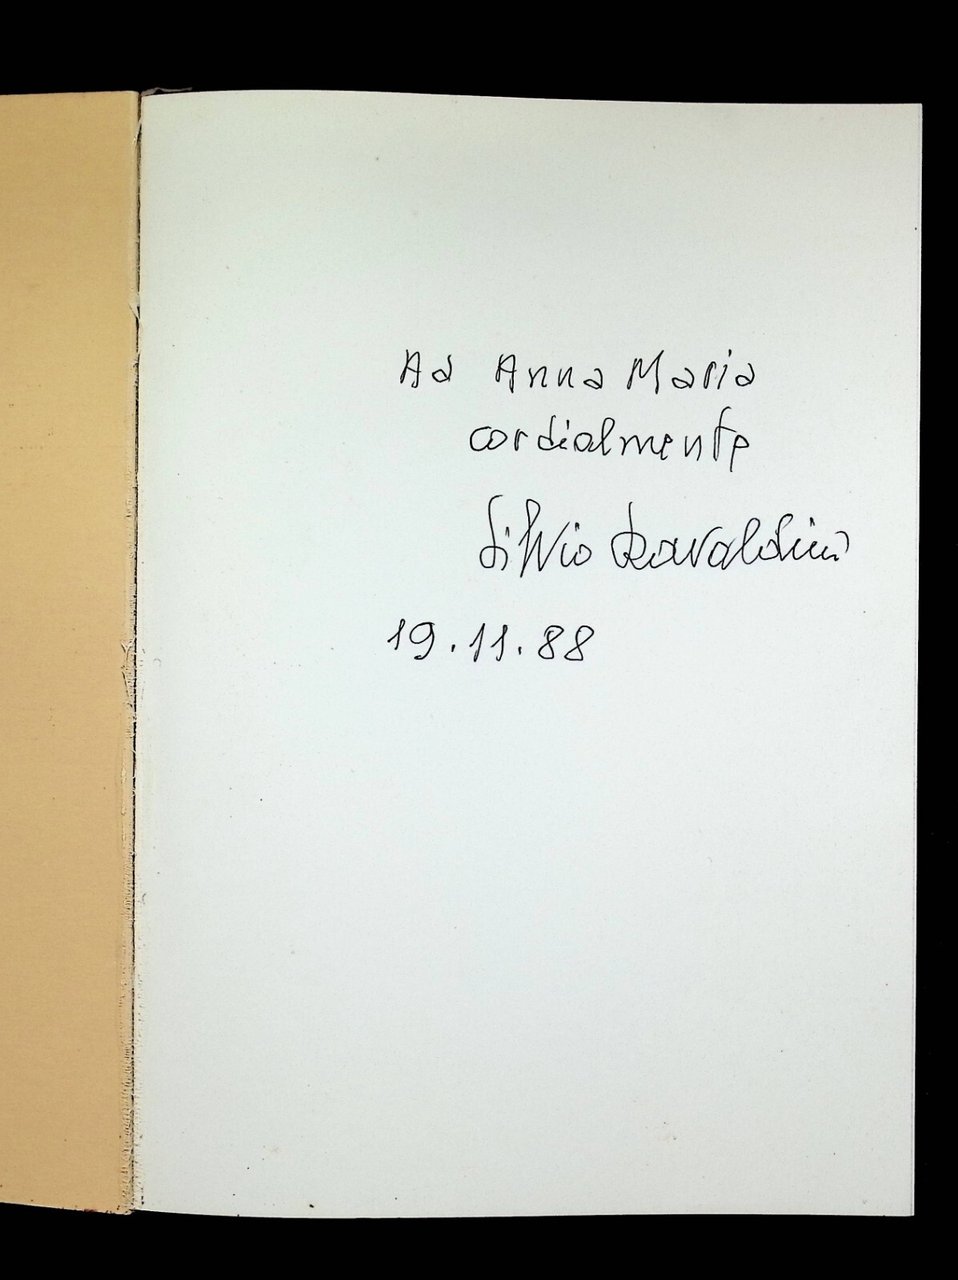 Ad Anna Maria
cordialmente
Silvio Ravaldini
19.11.88